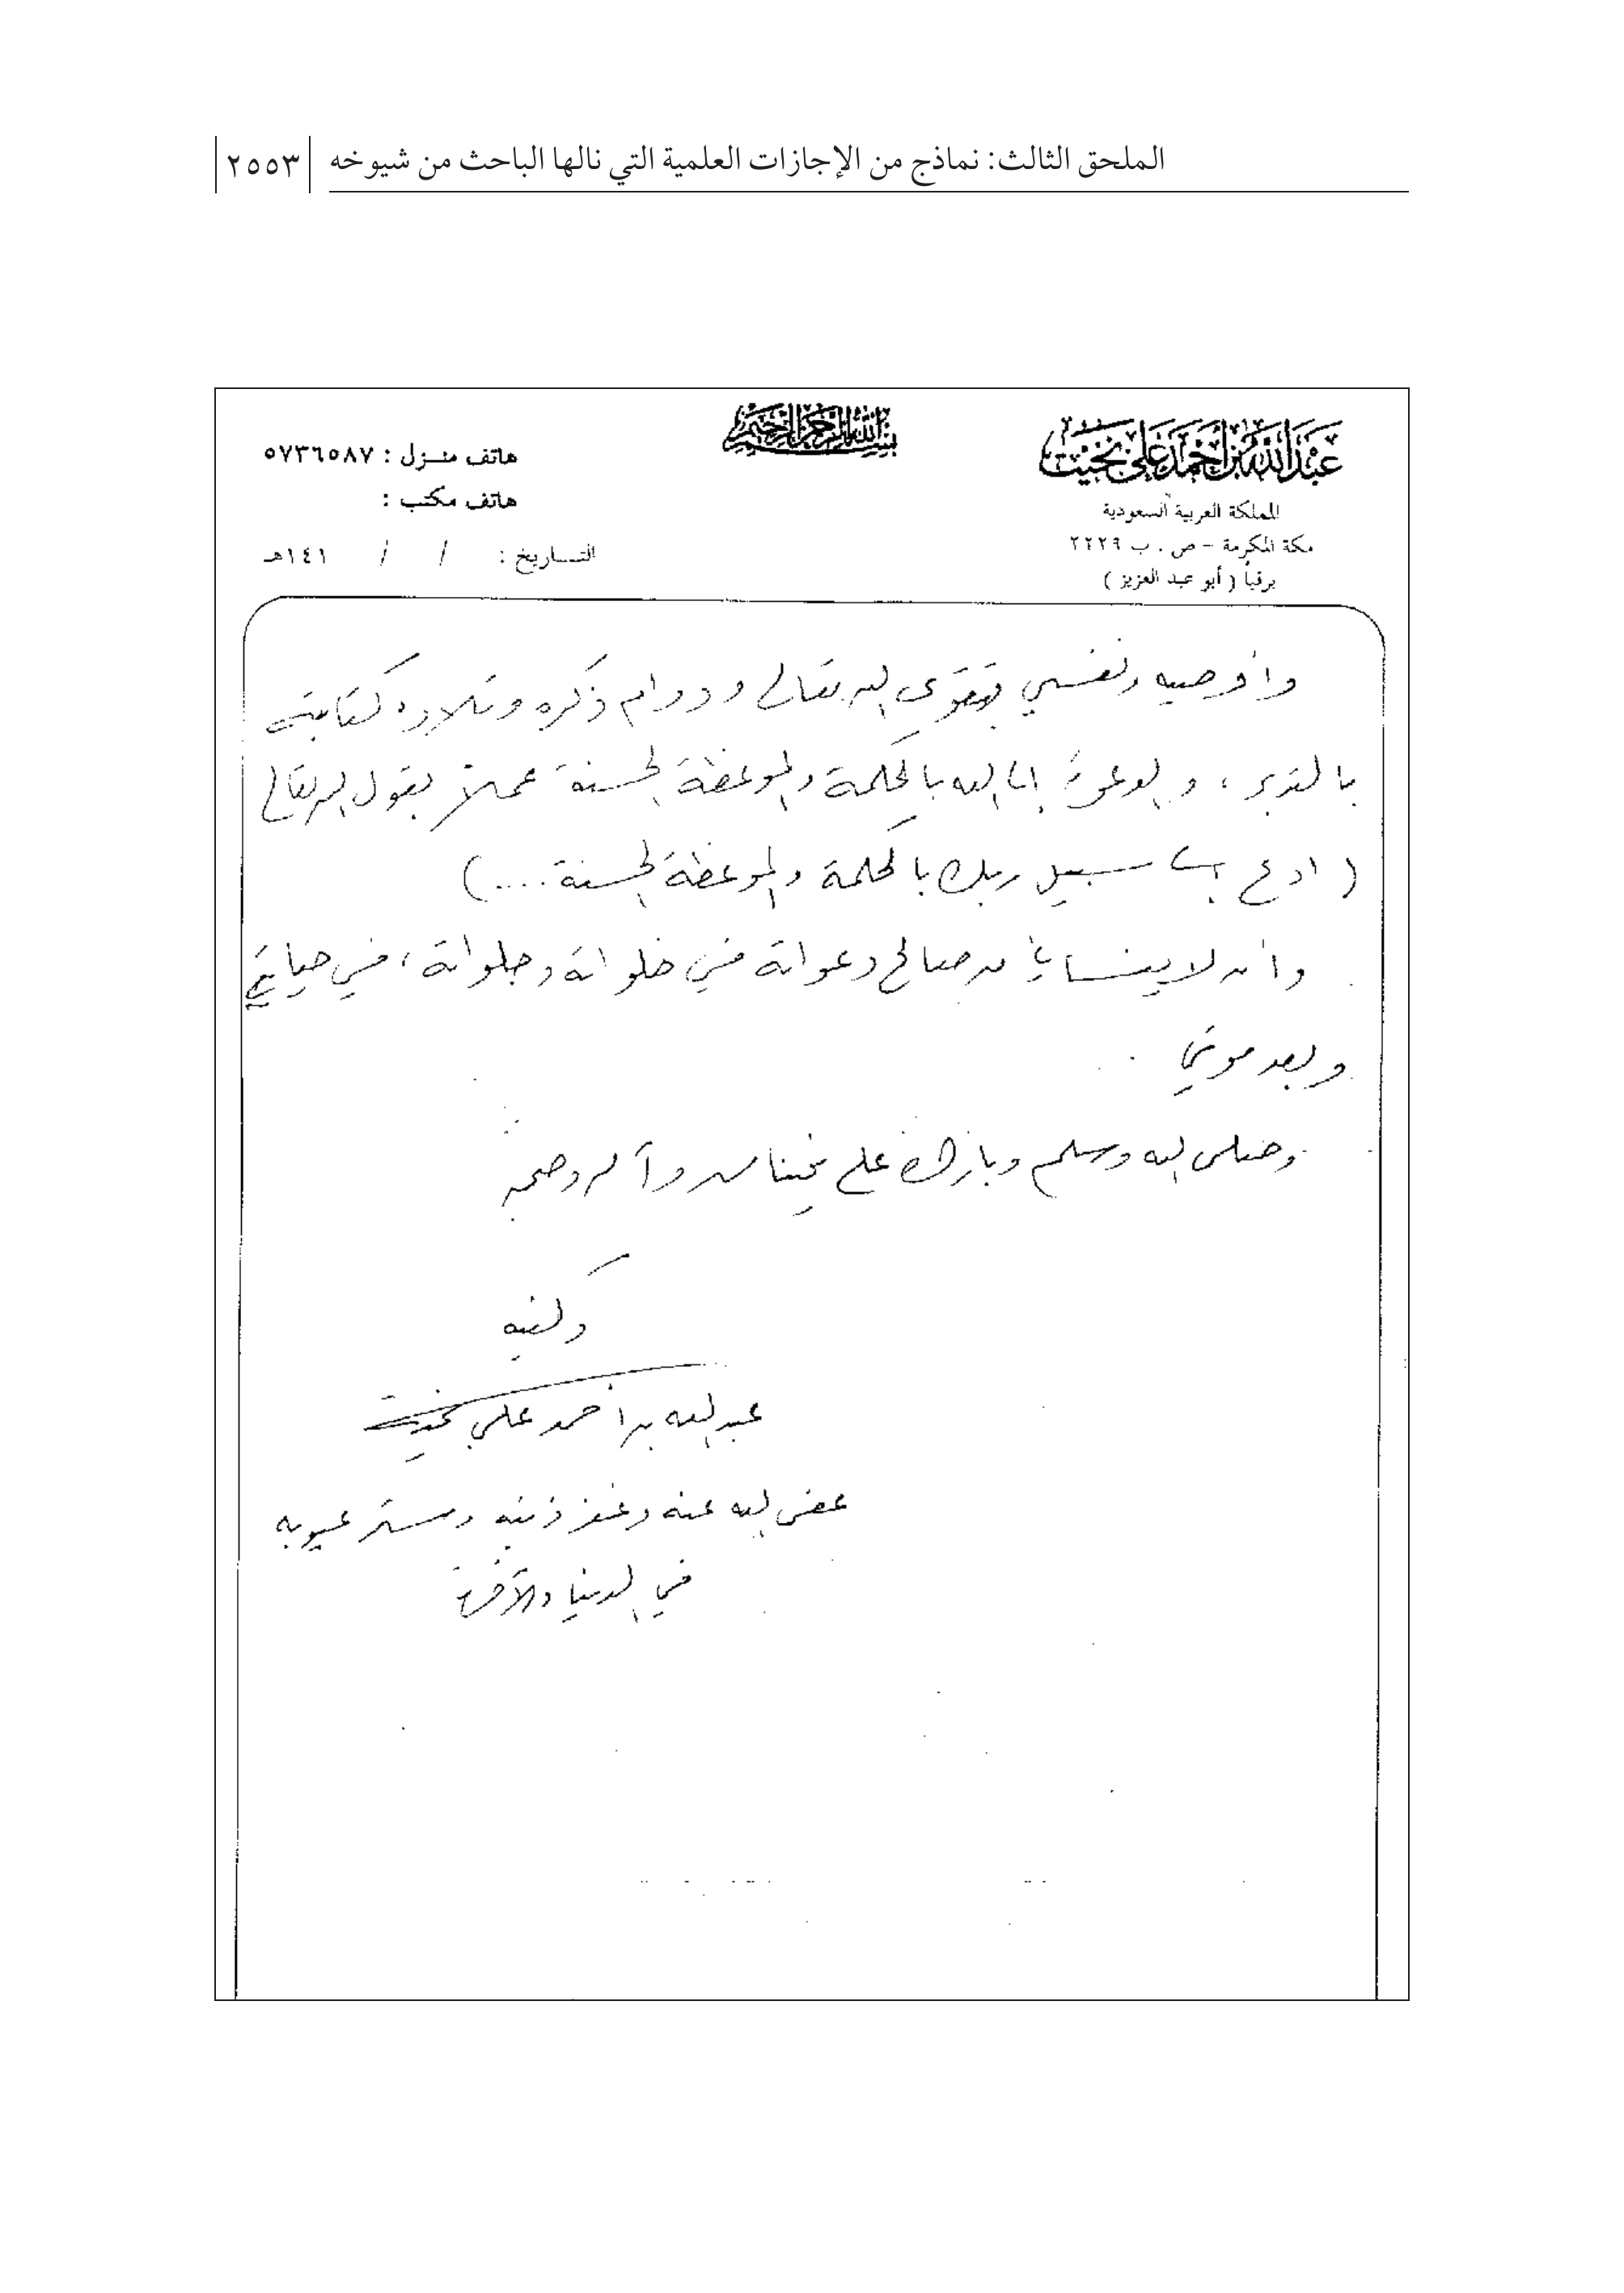 الملحق الثالث: نماذج من الإجازات العلمية التي نالها الباحث من شيوخه ٢٥٥٣
عبد الله بن أحمد علي بخيت
المملكة العربية السعودية
مكة المكرمة - ص . ب ٢٢٢٩
برقياً ( أبو عبد العزيز )
بسم الله الرحمن الرحيم
هاتف منزل : ٥٧٣٦٥٨٧
هاتف مكتب :
التاريخ : / / ١٤١هـ
وأوصيه ونفسي بتقوى الله تعالى ودوام ذكره وتلاوة كتابه
بالتدبر ، والدعوة إلى الله بالحكمة والموعظة الحسنة عملاً بقول الله تعالى
( ادع إلى سبيل ربك بالحكمة والموعظة الحسنة .... )
وأن لا ينساني من صالح دعواته في خلواته وجلواته ، في حياتي
وبعد موتي .
وصلى الله وسلم وبارك على نبينا محمد وآله وصحبه
وكتبه
عبد الله بن أحمد علي بخيت
عفى الله عنه وغفر ذنبه وستر عيوبه
في الدنيا والآخرة